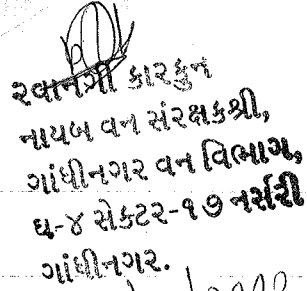 રવાનગી કારકુન
નાયબ વન સંરક્ષકશ્રી,
ગાંધીનગર વન વિભાગ,
ઘ-૪ સેક્ટર-૧૭ નર્સરી
ગાંધીનગર.